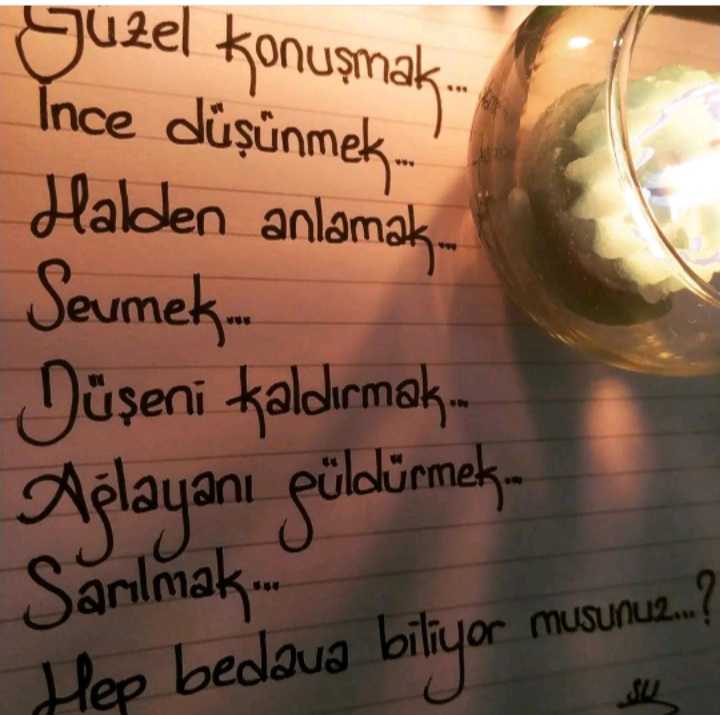 Güzel konuşmak...
İnce düşünmek...
Halden anlamak...
Sevmek...
Düşeni kaldırmak...
Ağlayanı güldürmek...
Sarılmak...
Hep bedava biliyor musunuz...?